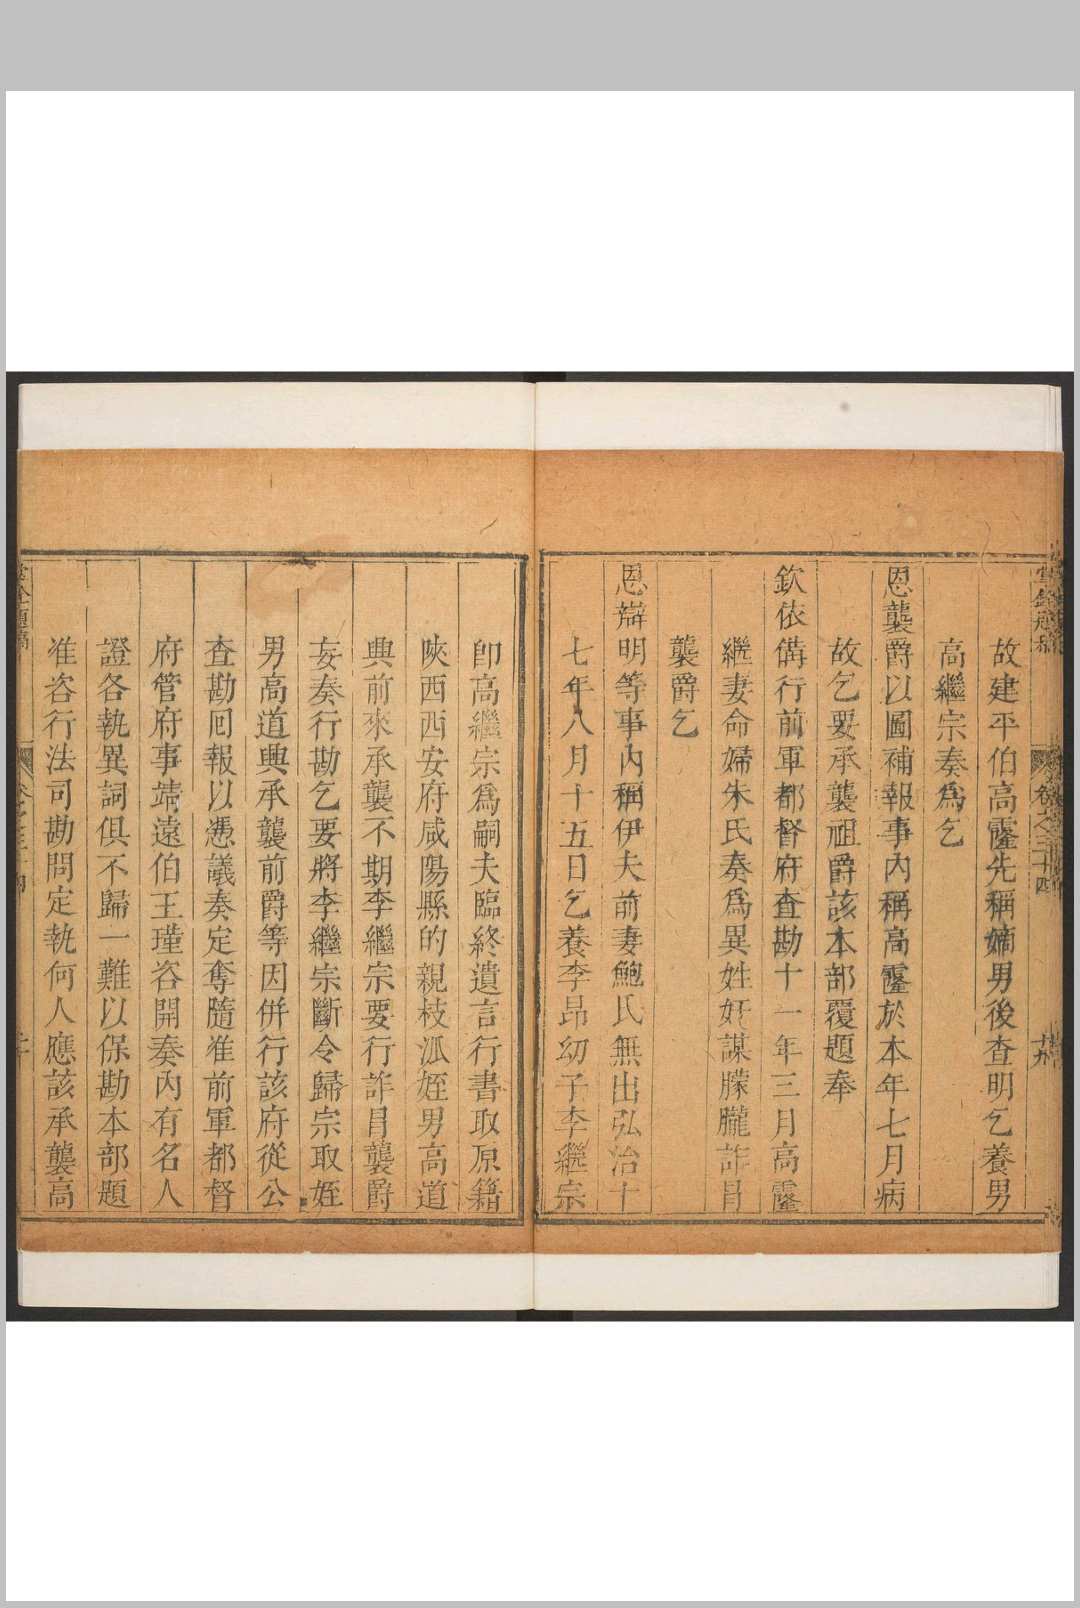 故建平伯高霳先稱嫡男後查明乞養男
高繼宗奏爲乞
恩襲爵以圖補報事內稱高霳於本年七月病
故乞要承襲祖爵該本部覆題奉
欽依備行前軍都督府查勘十一年三月高霳
繼妻命婦朱氏奏爲異姓奸謀朦朧詐冒
襲爵乞
恩辯明等事內稱伊夫前妻鮑氏無出弘治十
七年八月十五日乞養李昂幼子李繼宗
卽高繼宗爲嗣夫臨終遺言行書取原籍
陝西西安府咸陽縣的親枝派姪男高道
興前來承襲不期李繼宗要行詐冒襲爵
妄奏行勘乞要將李繼宗斷令歸宗取姪
男高道興承襲前爵等因併行該府從公
查勘囘報以憑議奏定奪隨准前軍都督
府管府事靖遠伯王瑾咨開奏內有名人
證各執異詞俱不歸一難以保勘本部題
准咨行法司勘問定執何人應該承襲高